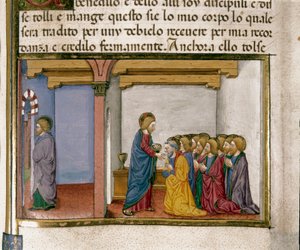 benedille e dello alli soy discipuli e dis
se tolli e mange questo sie lo mio corpo lo quale
sera tradito per vuy debielo recevere per mia recor
danza e credilo fermamente. Anchora ello tolse